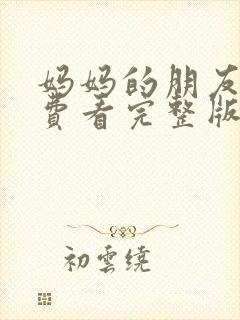 妈妈的朋友
费看完整版
初雲繞